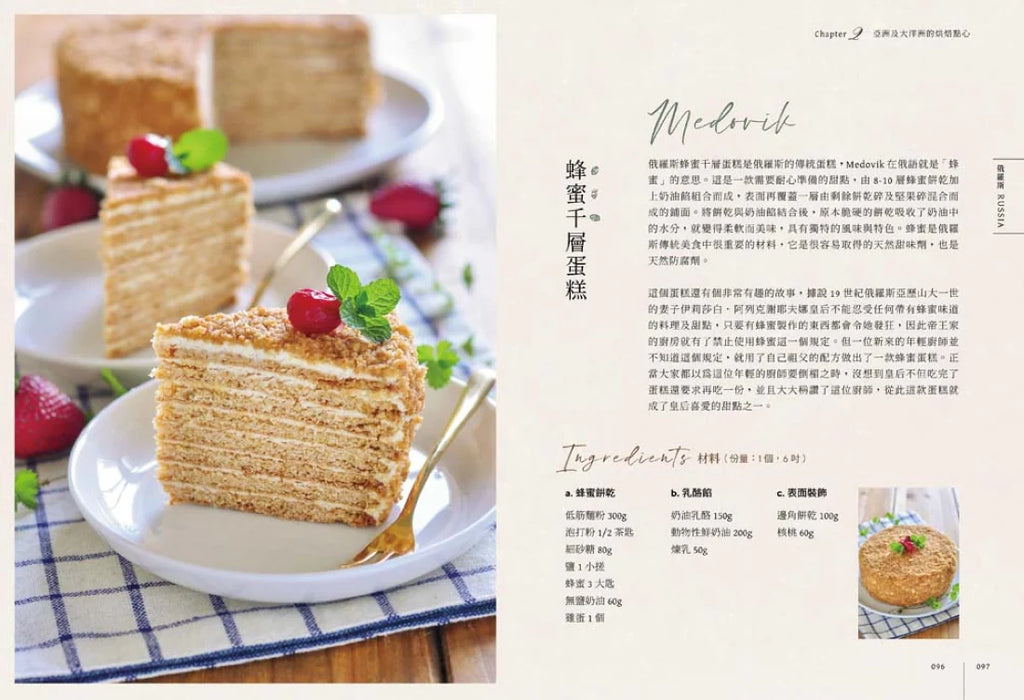 Chapter 2 亞洲及大洋洲的烘焙點心
Medovik
俄羅斯 RUSSIA
蜂蜜千層蛋糕
俄羅斯蜂蜜千層蛋糕是俄羅斯的傳統蛋糕，Medovik 在俄語就是「蜂
蜜」的意思。這是一款需要耐心準備的甜點，由 8-10 層蜂蜜餅乾加
上奶油餡組合而成，表面再覆蓋一層由剩餘餅乾碎及堅果碎混合而
成的鋪面。將餅乾與奶油餡結合後，原本脆硬的餅乾吸收了奶油中
的水分，就變得柔軟而美味，具有獨特的風味與特色。蜂蜜是俄羅
斯傳統美食中很重要的材料，它是很容易取得的天然甜味劑，也是
天然防腐劑。
這個蛋糕還有個非常有趣的故事，據說 19 世紀俄羅斯亞歷山大一世
的妻子伊莉莎白．阿列克謝耶夫娜皇后不能忍受任何帶有蜂蜜味道
的料理及甜點，只要有蜂蜜製作的東西都會令她發狂，因此帝王家
的廚房就有了禁止使用蜂蜜這一個規定。但一位新來的年輕廚師並
不知道這個規定，就用了自己祖父的配方做出了一款蜂蜜蛋糕。正
當大家都以為這位年輕的廚師要倒楣之時，沒想到皇后不但吃完了
蛋糕還要求再吃一份，並且大大稱讚了這位廚師，從此這款蛋糕就
成了皇后喜愛的甜點之一。
Ingredients 材料（份量：1個，6吋）
a. 蜂蜜餅乾
低筋麵粉 300g
泡打粉 1/2 茶匙
細砂糖 80g
鹽 1 小搓
蜂蜜 3 大匙
無鹽奶油 60g
雞蛋 1 個
b. 乳酪餡
奶油乳酪 150g
動物性鮮奶油 200g
煉乳 50g
c. 表面裝飾
邊角餅乾 100g
核桃 60g
096 097